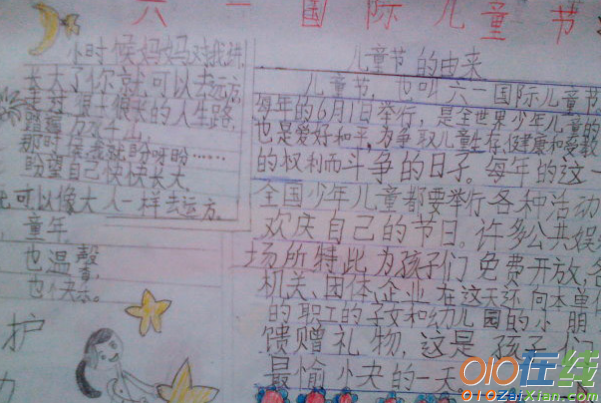 六一国际儿童节
小时候妈妈对我讲,
长大了你就可以去远方,
走过很长很长的人生路,
踏遍万水千山,
那时候我就盼呀盼……
盼望自己快快长大,
可以像大人一样去远方.
童年
也温馨,
也快乐。
护
儿童节的由来
儿童节,也叫六一国际儿童节
每年的6月1日举行,是全世界少年儿童的
也是爱好和平为争取儿童生存健康和受教
的权利而斗争的日子。每年的这一
全国少年儿童都要举行各种活动
欢庆自己的节日。许多公共娱
场所特此为孩子们免费开放,各
机关、团体、企业在这天还向本单位
的职工的子女和幼儿园的小朋
馈赠礼物,这是孩子们
最愉快的一天。
010在线
010ZaiXian.com